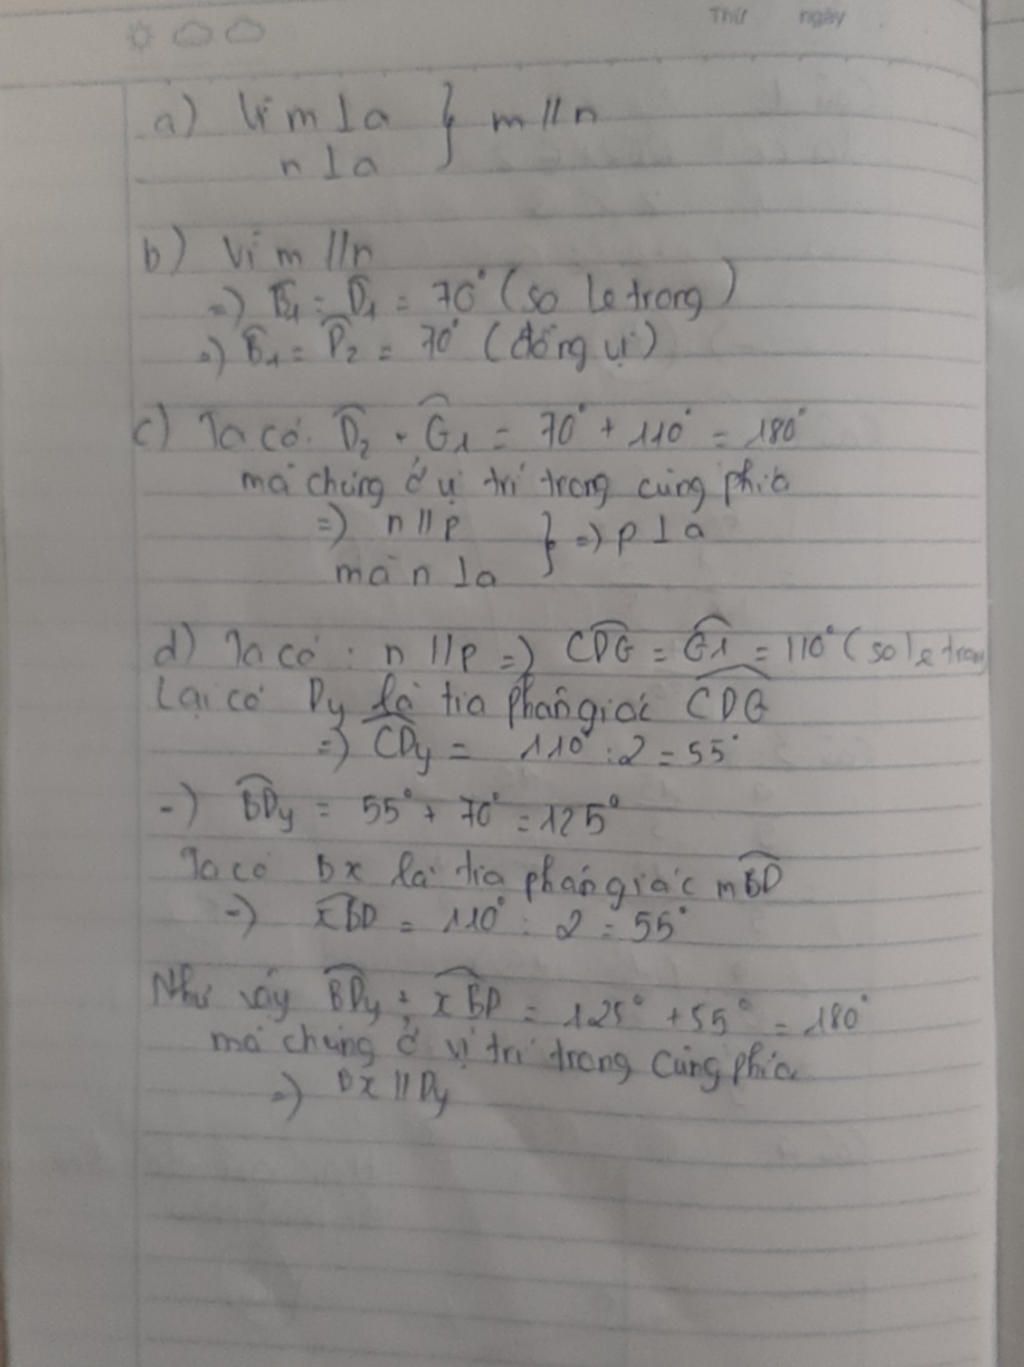 Thứ ngày
a) Vì m ⊥ a } m // n
n ⊥ a
b) Vì m // n
=) B̂₁ = D̂₁ = 70° (so le trong)
=) B̂₁ = D̂₂ = 70° (đồng vị)
c) Ta có: D̂₂ + Ĝ₁ = 70° + 110° = 180°
mà chúng ở vị trí trong cùng phía
=) n // p } =) p ⊥ a
mà n ⊥ a
d) Ta có : n // p =) CDG = Ĝ₁ = 110° (so le trong
Lại có Dy là tia phân giác CDG
=) CDy = 110° : 2 = 55°
=) BDy = 55° + 70° = 125°
Ta có Bx là tia phân giác mBD
=) xBD = 110° : 2 = 55°
Như vậy BDy + xBD = 125° + 55° = 180°
mà chúng ở vị trí trong cùng phía
=) Bx // Dy